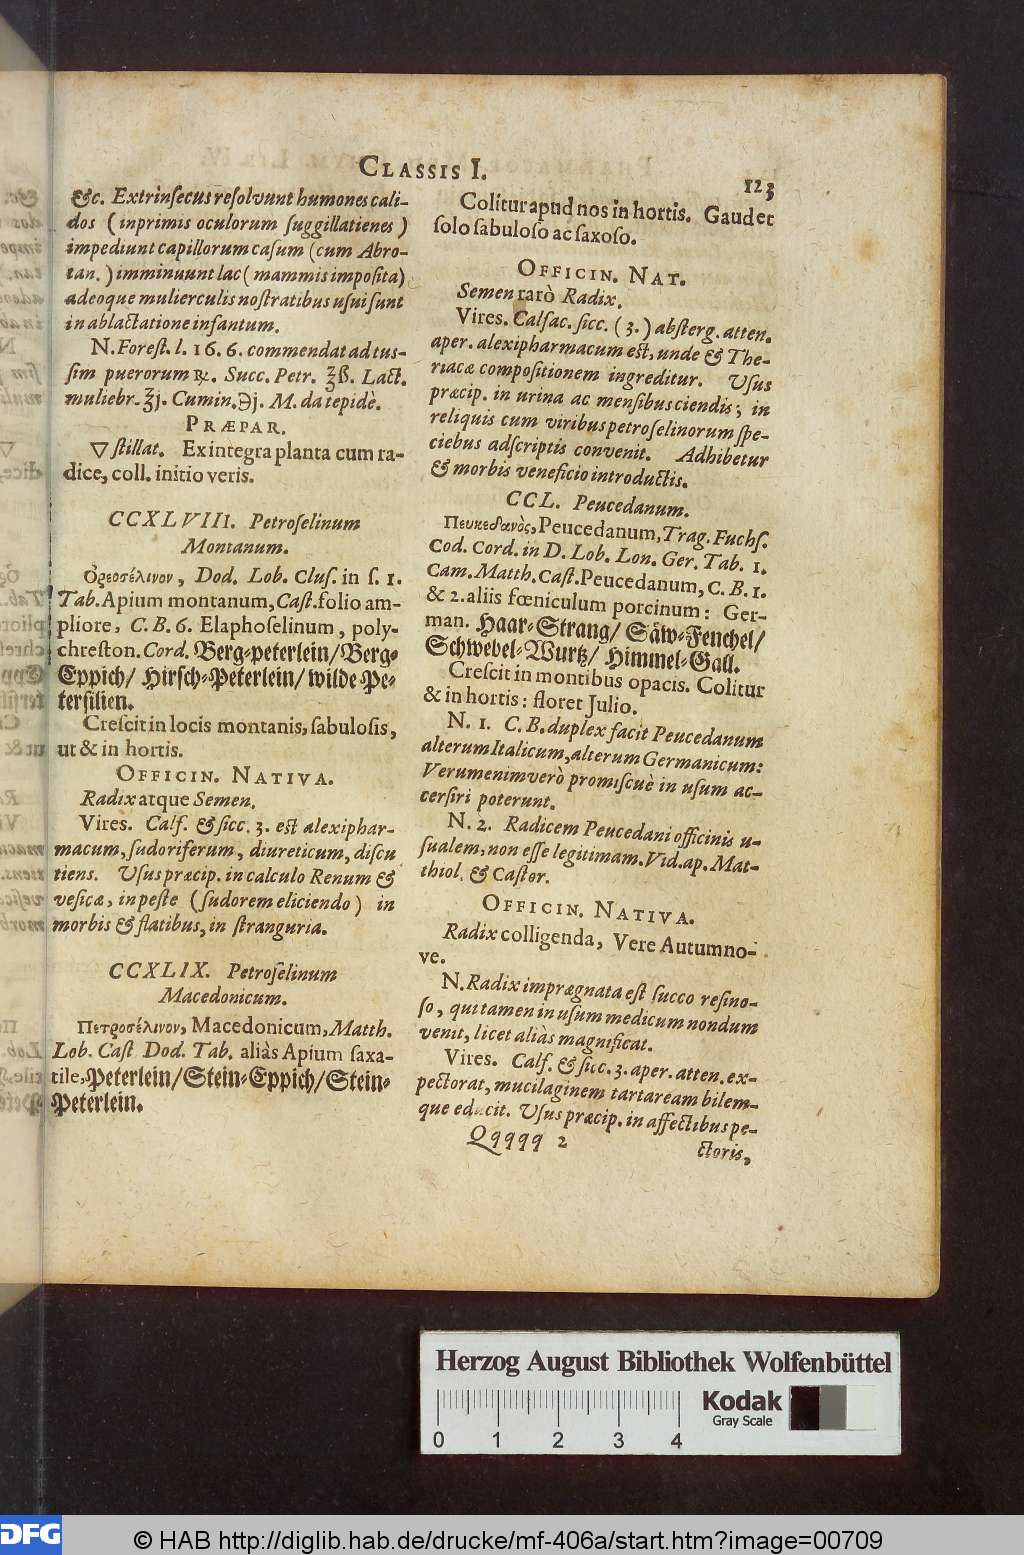 CLASSIS I.
123
&c. Extrinsecus resolvunt humones cali-
dos (inprimis oculorum ſuggillatienes)
impediunt capillorum caſum (cum Abro-
tan.) imminuunt lac (mammis impoſita)
adeoque mulierculis noſtratibus uſui ſunt
in ablactatione infantum.
N. Foreſt. l. 16. 6. commendat ad tus-
ſim puerorum ℞. Succ. Petr. ℥ß. Lact.
muliebr. ℥j. Cumin. ℈j. M. da tepidè.
PRÆPAR.
▽ ſtillat. Ex integra planta cum ra-
dice, coll. initio veris.
CCXLVIII. Petroſelinum
Montanum.
Ὀρεοσέλινον, Dod. Lob. Cluſ. in ſ. 1.
Tab. Apium montanum, Caſt. folio am-
pliore, C. B. 6. Elaphoſelinum, poly-
chreſton. Cord. Berg-peterlein/ Berg-
Eppich/ Hirſch-Peterlein/ wilde Pe-
terſilien.
Creſcit in locis montanis, ſabuloſis,
ut & in hortis.
OFFICIN. NATIVA.
Radix atque Semen.
Vires. Calf. & ſicc. 3. eſt alexiphar-
macum, ſudoriferum, diureticum, diſcu
tiens. Uſus præcip. in calculo Renum &
veſicæ, in peſte (ſudorem eliciendo) in
morbis & flatibus, in ſtranguria.
CCXLIX. Petroſelinum
Macedonicum.
Πετροσέλινον, Macedonicum, Matth.
Lob. Caſt Dod. Tab. aliàs Apium ſaxa-
tile, Peterlein/ Stein-Eppich/ Stein-
Peterlein.
Colitur apud nos in hortis. Gaudet
ſolo ſabuloſo ac ſaxoſo.
OFFICIN. NAT.
Semen rarò Radix.
Vires. Calfac. ſicc. (3.) abſterg. atten.
aper. alexipharmacum eſt, unde & The-
riacæ compoſitionem ingreditur. Uſus
præcip. in urina ac menſibus ciendis; in
reliquis cum viribus petroſelinorum ſpe-
ciebus adſcriptis convenit. Adhibetur
& morbis veneficio introductis.
CCL. Peucedanum.
Πευκεδανὸς, Peucedanum, Trag. Fuchſ.
Cod. Cord. in D. Lob. Lon. Ger. Tab. 1.
Cam. Matth. Caſt. Peucedanum, C. B. 1.
& 2. aliis fœniculum porcinum: Ger-
man. Haar-Strang/ Säw-Fenchel/
Schwebel-Wurtz/ Himmel-Gall.
Creſcit in montibus opacis. Colitur
& in hortis: floret Julio.
N. 1. C. B. duplex facit Peucedanum
alterum Italicum, alterum Germanicum:
Verumenimverò promiſcuè in uſum ac-
cerſiri poterunt.
N. 2. Radicem Peucedani officinis u-
ſualem, non eſſe legitimam. Vid. ap. Mat-
thiol. & Caſtor.
OFFICIN. NATIVA.
Radix colligenda, Vere Autumno-
ve.
N. Radix imprægnata eſt ſucco reſino-
ſo, qui tamen in uſum medicum nondum
venit, licet aliàs magnificat.
Vires. Calf. & ſicc. 3. aper. atten. ex-
pectorat, mucilaginem tartaream bilem-
que educit. Uſus præcip. in affectibus pe-
Qqqqq 2
ctoris,
Herzog August Bibliothek Wolfenbüttel
Kodak
Gray Scale
0 1 2 3 4
DFG
© HAB http://diglib.hab.de/drucke/mf-406a/start.htm?image=00709